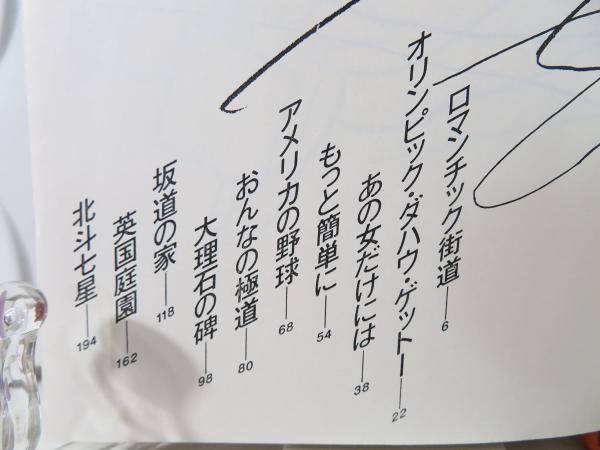 ロマンチック街道—6
オリンピック・ダハウ・ゲットー—22
あの女だけには—38
もっと簡単に—54
アメリカの野球—68
おんなの極道—80
大理石の碑—98
坂道の家—118
英国庭園—162
北斗七星—194